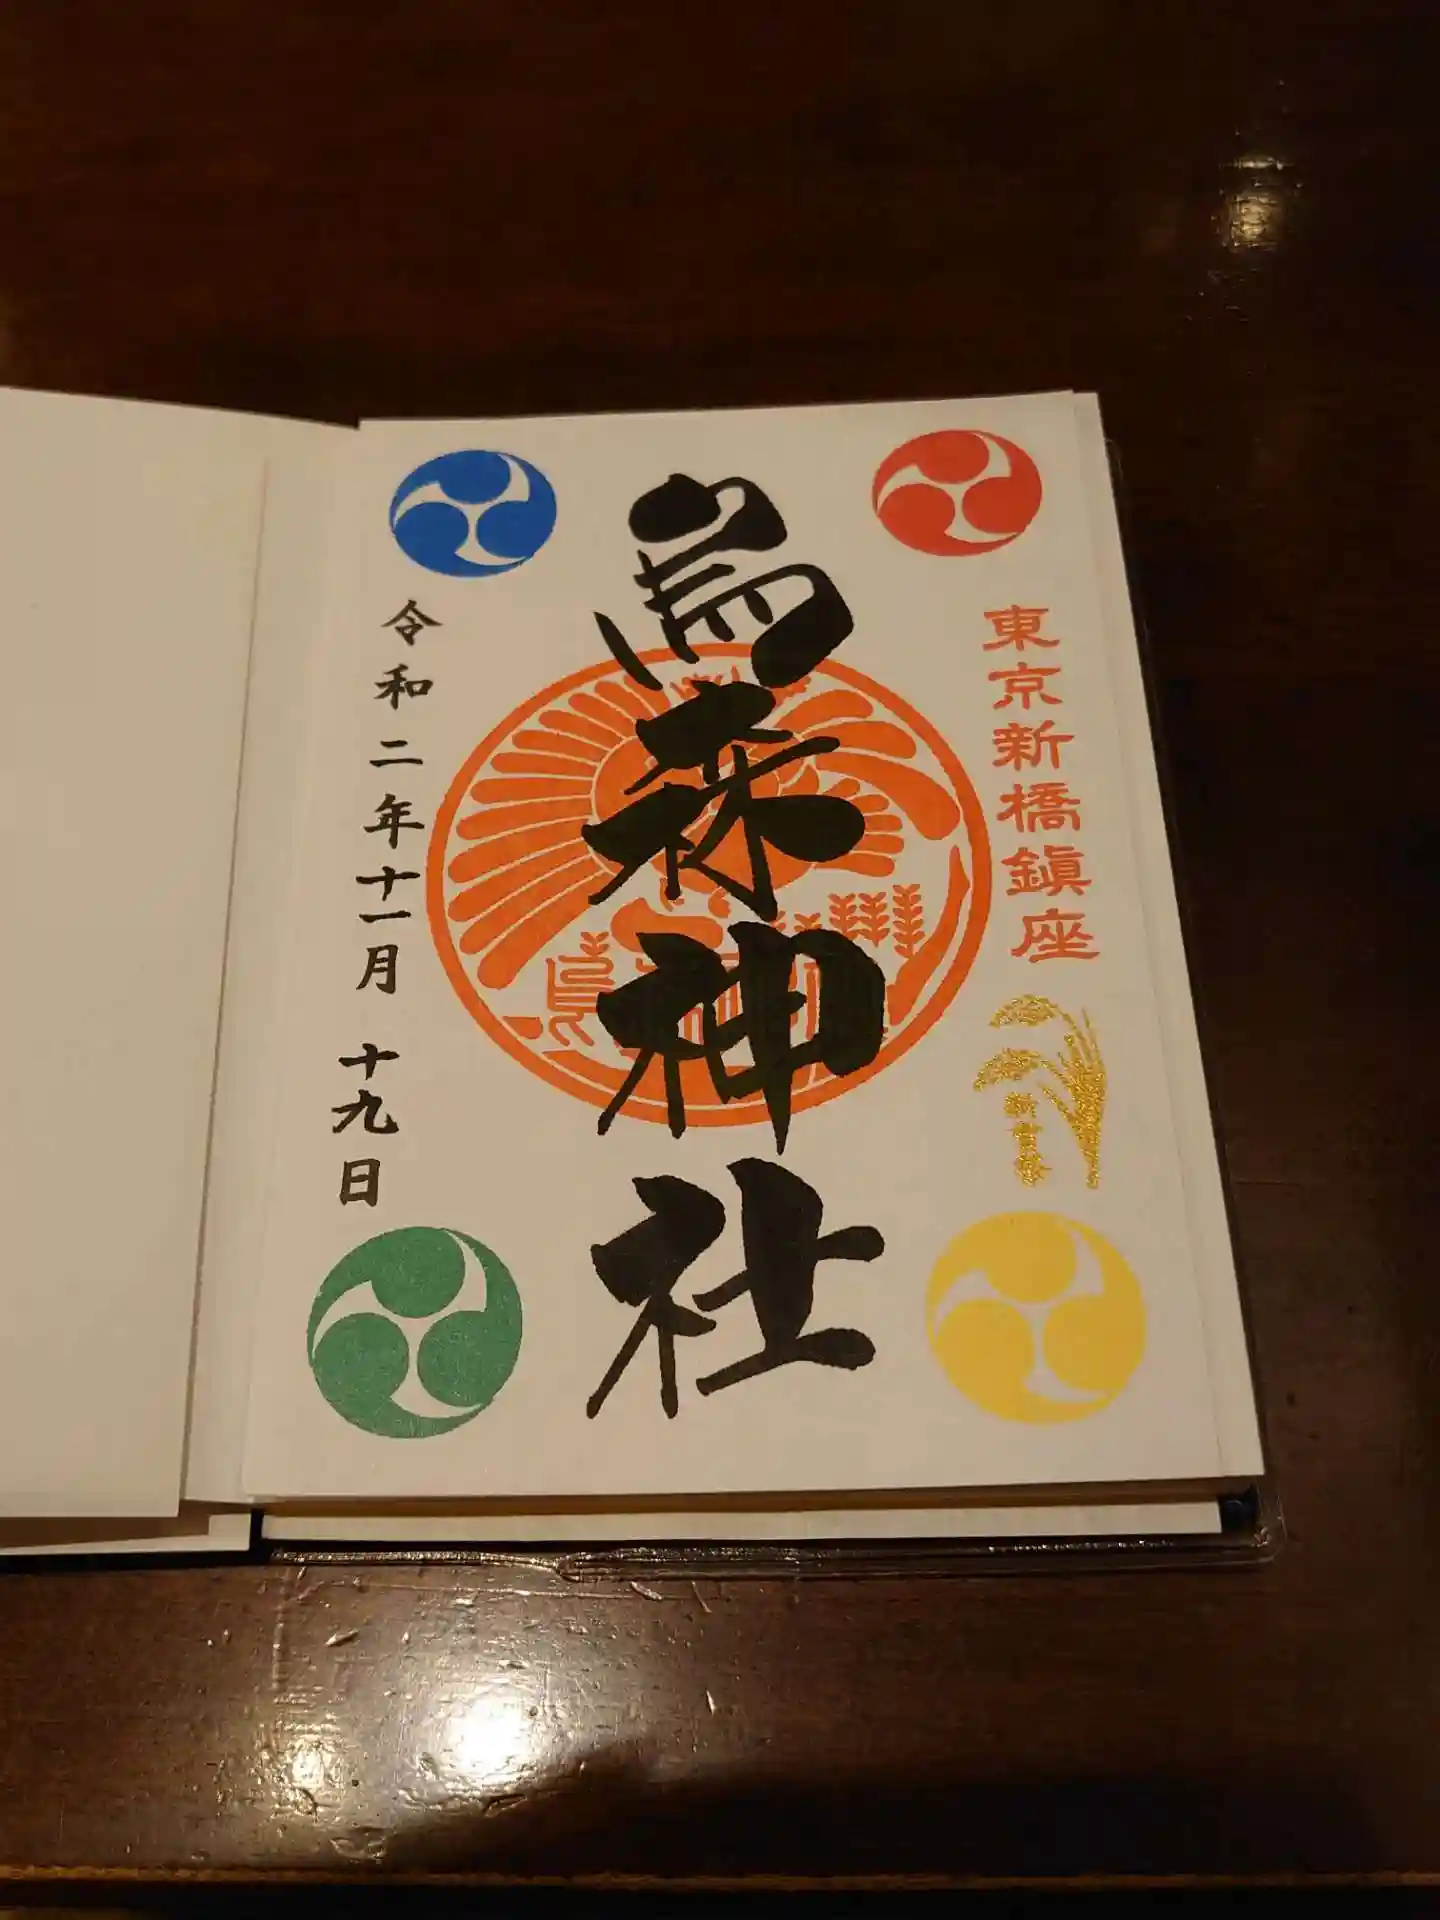 東京新橋鎮座
新嘗祭
烏森神社
令和二年十一月十九日